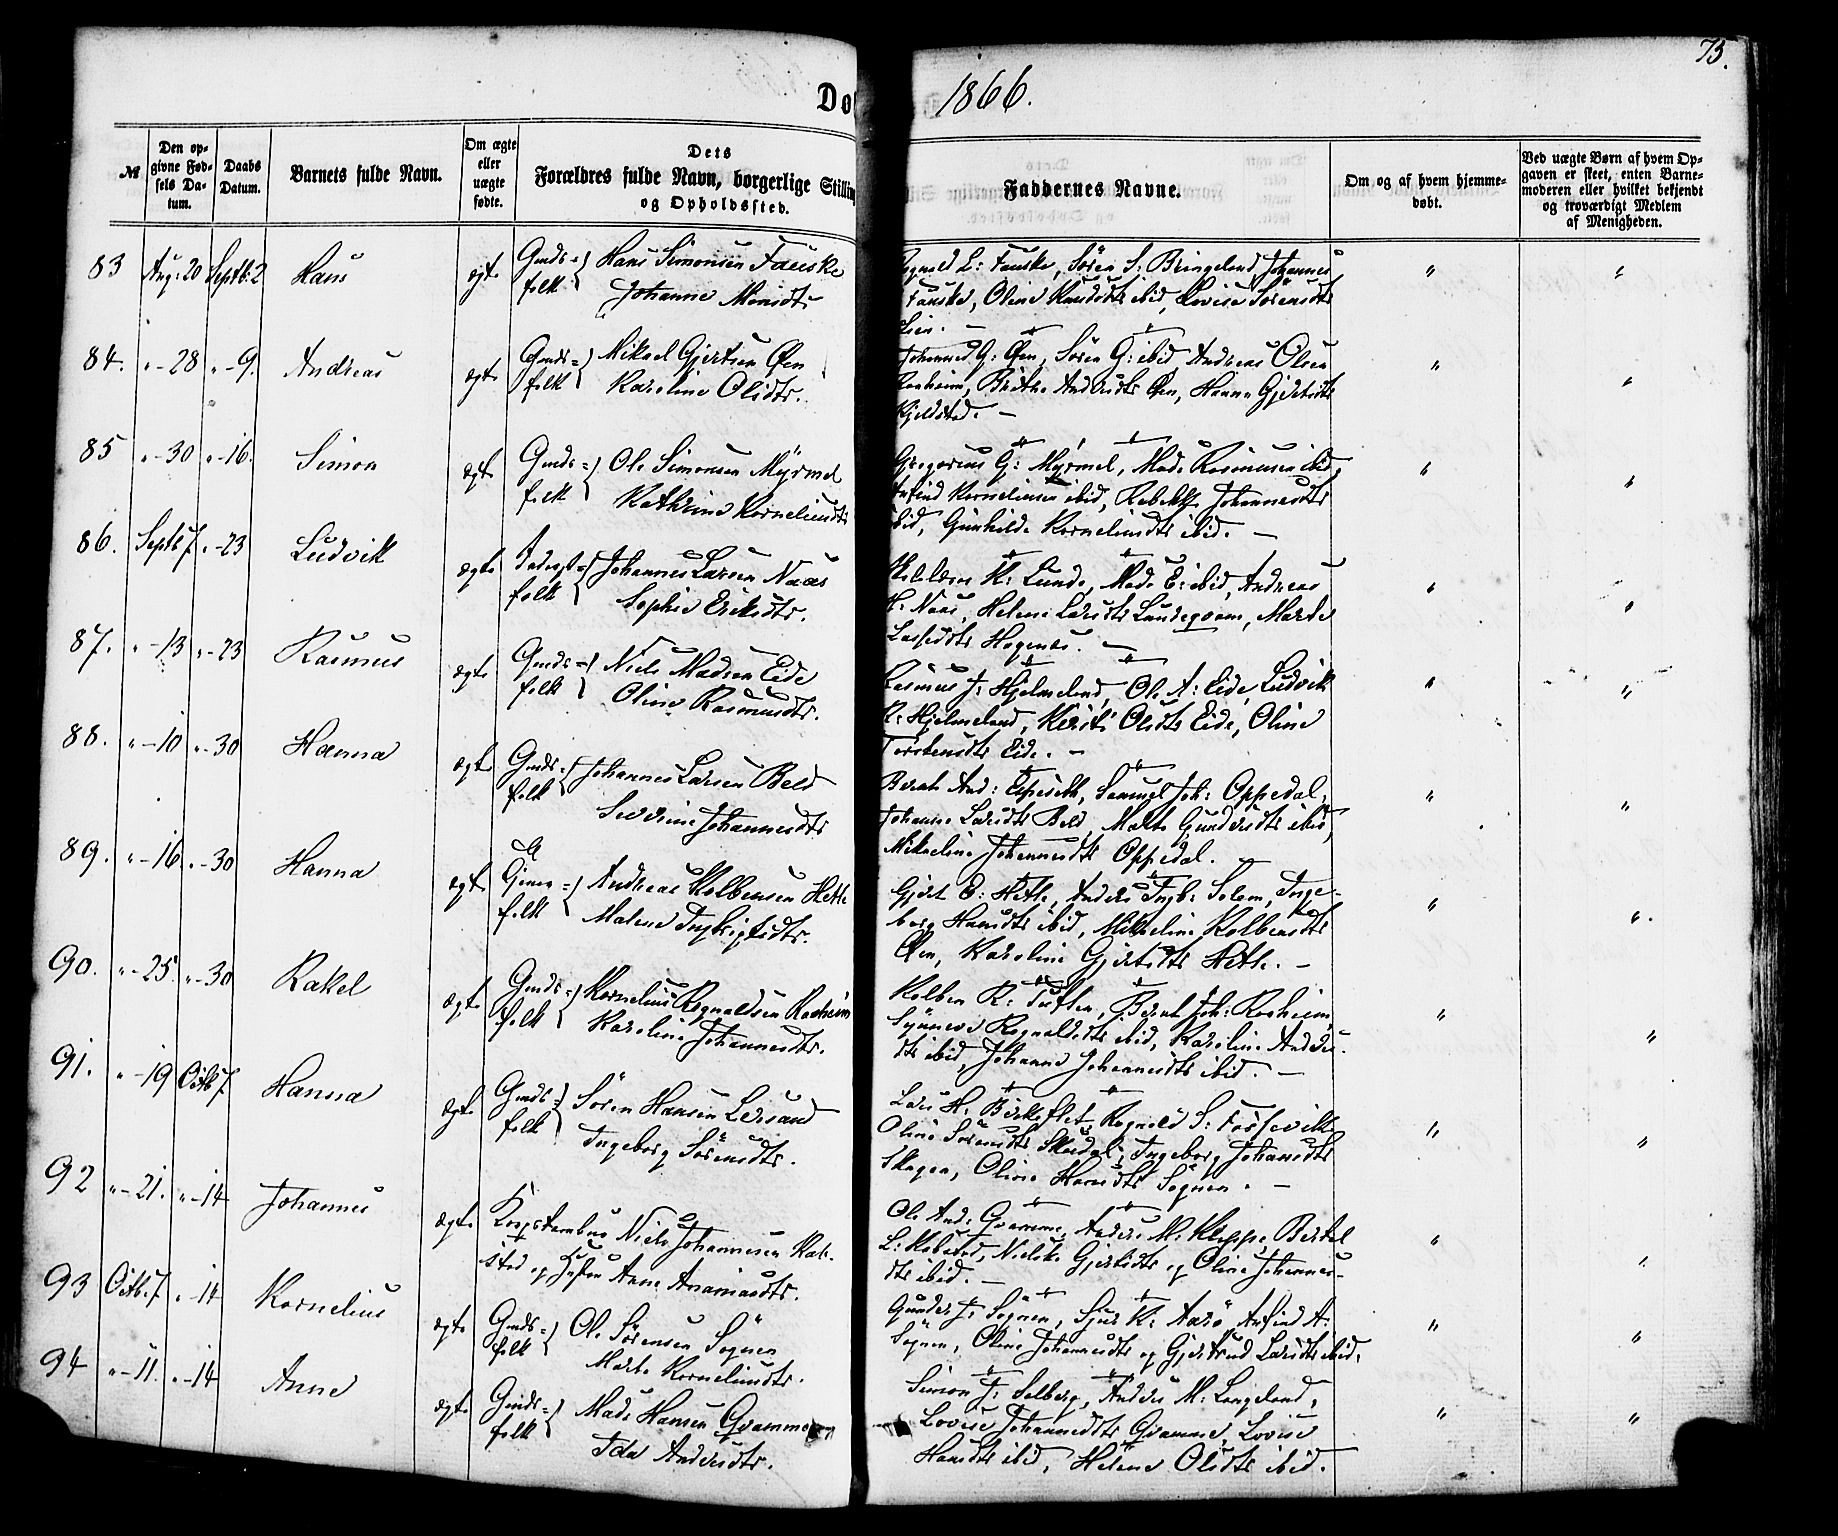 75.
Dø
1866.
№
Den opgivne Fødsels Datum.
Daabs Datum.
Barnets fulde Navn.
Om ægte eller uægte fødte.
Dets Forældres fulde Navn, borgerlige Stillin og Opholdssted.
Faddernes Navne.
Om og af hvem hjemmedøbt.
Ved uægte Børn af hvem Opgaven er skeet, enten Barnemoderen eller hvilket bekjendt og troværdigt Medlem af Menigheden.
83 Aug: 20 Septb: 2 Hans ægte Gmds= folk { Hans Simonsen Fauske
Johanne Monsdtr
Fauske, Søren S: Bringeland, Johannes
Fauske, Oline Knudsdtr ibid, Lovise Sørensdtr
Lien. —
84. " - 28 " - 9. Andreas ægte Gmds= folk { Mikael Gjertsen Øen
Karoline Olsdtr.
Johannes G: Øen, Søren G: ibid, Andreas Olsen
Brithe Andersdtr Øen, Hanna Gjertsdtr
Kjelstad. —
85 " - 30 " - 16. Simon ægte Gmds= folk { Ole Simonsen Myrmel
Kathrine Kornelius dtr
Gregorius G: Myrmel, Mads Rasmussen ibid,
Anfind Korneliusen ibid, Rebekka Johannesdtr
ibid, Gunhilde Korneliusdtr ibid. —
86. Septb 7. " - 23 Ludvik ægte folk { Johannes Larsen Naas
Sophie Eriksdtr.
K: Lunde, Mads E: ibid, Andreas
H: Naas, Helene Larsdtr Marte
Lassesdtr —
87. " - 13 " - 23 Rasmus ægte Gmds= folk { Niels Madsen Eide
Oline Rasmusdtr.
Rasmus J: Hjelmeland, Ole A: Eide, Ludvik
R: Hjelmeland, Kersti Olsdtr Eide, Oline
Torstensdtr Eide. —
88. " - 10 " - 30 Hanna ægte Gmds= folk { Johannes Larsen Beld
Severine Johannesdtr
Bernt And: Espeseth, Samuel Joh: Oppedal,
Johanne Larsdtr Beld, Malte Gundersdtr ibid,
Mikaeline Johannesdtr Oppedal.
89. " - 16 " - 30 Hanna ægte folk { Andreas Kolbensen Hetle
Malene Ingbrigtsdtr.
Gjert E: Hetle, Anders Ingb: Solem, Inge-
borg Hansdtr ibid, Mikkeline Kolbensdtr
Øen, Karoline Gjertsdtr Hetle. —
90. " - 25. " - 30 Rakel ægte Gmds= folk { Kornelius Rognaldsen Rosheim
Karoline Johannesdtr.
Kolben R: Tuften, Bernt Joh: Rosheim,
Synneve Rognaldsdtr ibid, Karoline Anders-
dtr ibid, Johanne Johannesdtr ibid. —
91. " - 19 Octb 7. Hanna ægte Gmds= folk { Søren Hansen Leersand
Ingeborg Sørensdtr.
Lars H. Birkeflet, Rognald S: Fossevik
Oline Sørensdtr Skardal, Ingeborg Johannesdtr
Skogen, Oline Hansdtr Søgnen. —
92 " - 21. " - 14 Johannes ægte Niels Johannesen Kob-
stad og Hustru Anne Ananiasdtr.
Ole And: Qvamme, Anders M: Kleppe, Bertel
L: Kobstad, Gjertsdtr og Oline Johannes-
dtr ibid. —
93 Octb. 7. " - 14 Kornelius ægte Gmds= folk { Ole Sørensen Søgnen
Marte Korneliusdtr.
Gunder J: Søgnen, Sjur K: Aarø, Anfind A:
Søgnen, Oline Johannesdtr og Gjertrud Larsdtr ibid.
94 " - 11. " - 14 Anne ægte Gmds= folk { Mads Hansen Qvamme
Ida Andersdtr.
Simon J: Solberg, Anders M: Langeland,
Lovise Johannesdtr Qvamme, Lovise
Hansdtr ibid, Helene Olsdtr ibid.